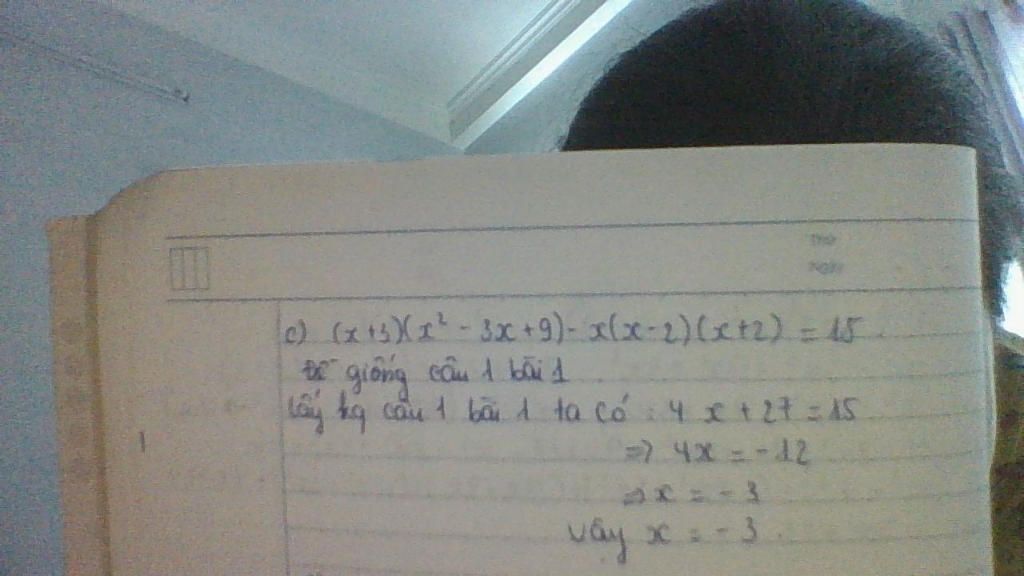 Thứ
Ngày
c) (x+3)(x² - 3x + 9) - x(x-2)(x+2) = 15
Đề giống câu 1 bài 1
lấy kq câu 1 bài 1 ta có : 4x + 27 = 15
=> 4x = -12
=> x = -3
Vậy x = -3.